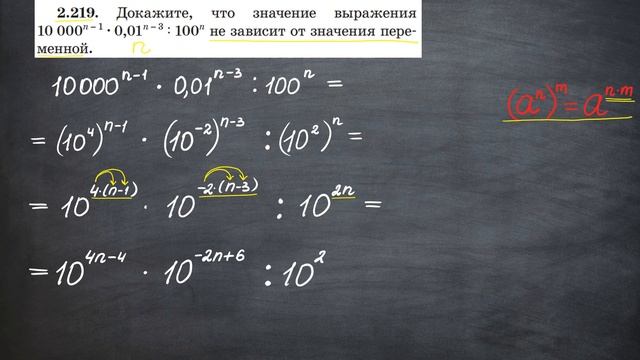 2.219. Докажите, что значение выражения
10 000ⁿ⁻¹ · 0,01ⁿ⁻³ : 100ⁿ не зависит от значения пере-
менной. n
10000ⁿ⁻¹ · 0,01ⁿ⁻³ : 100ⁿ =
(aⁿ)ᵐ = aⁿ·ᵐ
= (10⁴)ⁿ⁻¹ · (10⁻²)ⁿ⁻³ : (10²)ⁿ =
= 10⁴·⁽ⁿ⁻¹⁾ · 10⁻²·⁽ⁿ⁻³⁾ : 10²ⁿ =
= 10⁴ⁿ⁻⁴ · 10⁻²ⁿ⁺⁶ : 10²